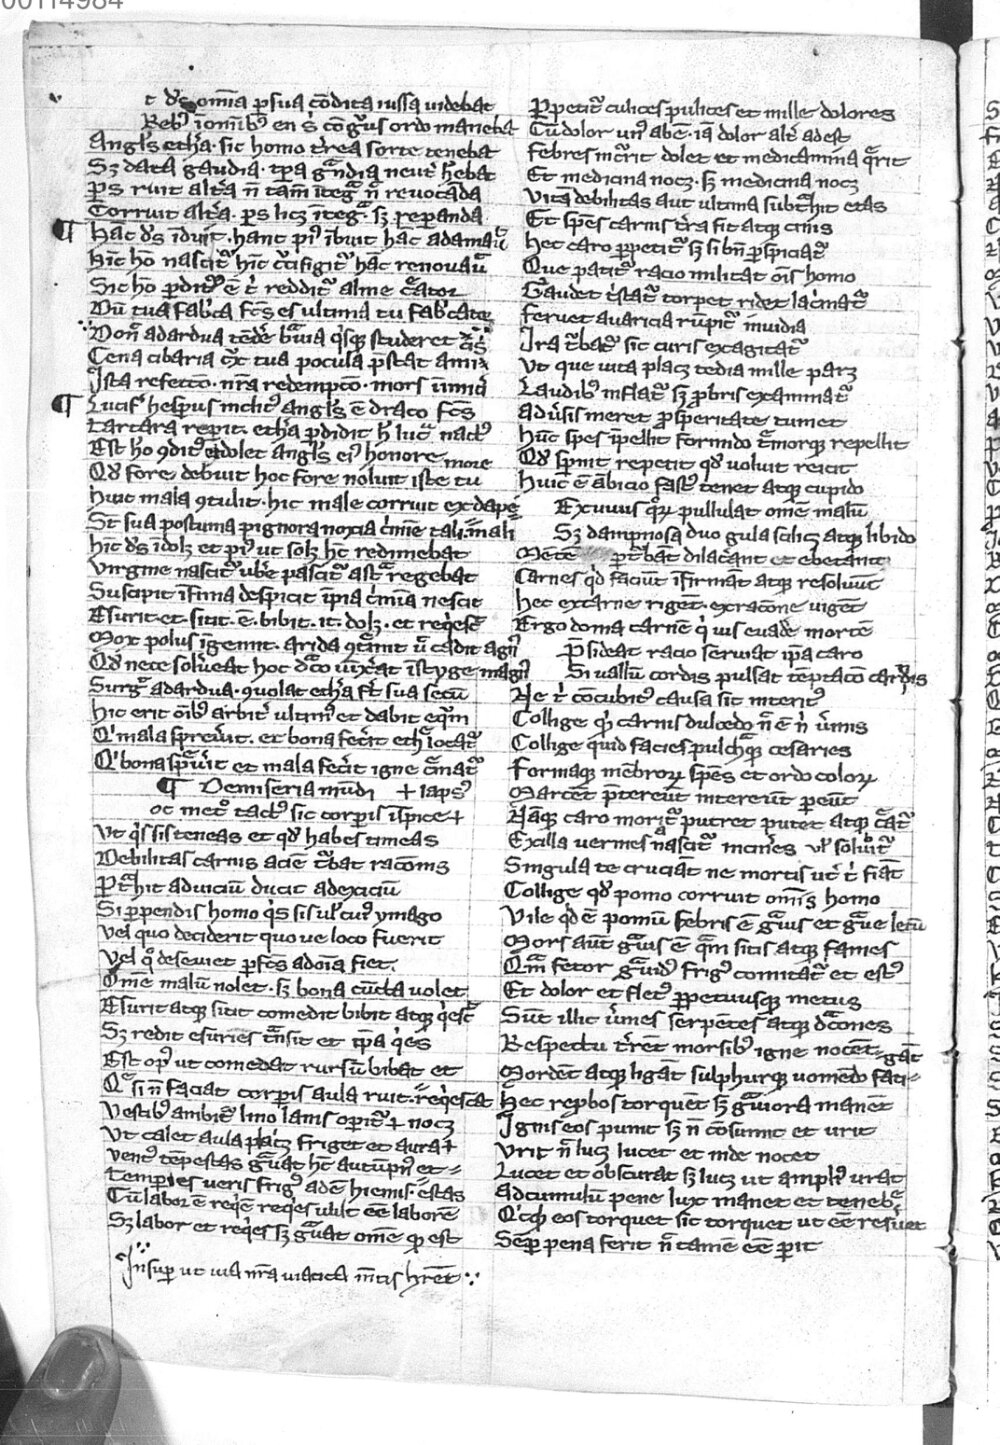 00114984
t d's omīa p sua cōdita iussa uidebat
Reb' ī omīb' en s; cōgruus ordo manebat
Angl's ethͣa. sic homo trrea sorte tenebat
Sꝫ data gaudia. tpa grandia neut' hēbat
ps ruit altͣa n̄ tam̄ ītegͣ n̄ reuocāda
Corruit altͣa. ps licꝫ ītegͣ. sꝫ repanda
Hāc d's īduit. hanc pi' ībuit hāc adamauͭ
Hīc hō nascitͬ hīc crucifigitͬ hāc renouauͭ
Sic hō pdit' ē t' redditͬ alme creator
Dū tua fabͥca fc̄s es ultima tu fabͥcate
Don' ad ardua tēdē bͣuia qͥsqꝫ studeret
Cena cibaria tua pocula pstat am
Ista refectō. nrͣa redemptō. mors
Lucifͬ hespus inclit' angl's ē draco fc̄s
tartara repit. ethͣa pdidit h' luc nact'
Est hō 9dit' dolet angl's ei' honore
more
Qd' fore debuit hoc fore noluit iste tu
Huic mala 9tulit. hic male corruit ex dape
St sua postuma pignora noxia cͥmīe tali mali
hīc d's īdolꝫ et pi' ut solꝫ hīc redimebat
Virgine nascitͬ ub'e pascitͬ astͣ regebat
Suscipit īfima despicit īpia cͥmīa nescit
Esurit. et. sitit. ē. bibit. it. dolꝫ. et reqͥesc̄
Mox polus īgemit. arida 9tͥmit u' cadit agn'
Qd' nece solu'eat hoc dͣco uīxͣat ī styge magn'
Surgͬ ad ardua. 9uolat ethͣa fͭ sua secū
hic erit oīb' arbit' ultim' et dabit equm
Qͥ mala spreu'it. et bona fec'it ethͬ locatͬ
Qͥ bona spreu'it et mala fec'it igne cͣmatͬ
¶ De miseria mūdi + laps'
oc met' tact' sic corpis īspice +
Vt qͥs sis teneas et qd' habes timeas
Debilitas carnis aciē tͥbat racōnis
Ptͣhit ad uiciū ducit ad exiciū
Si ppendis homo qͥs sis ul' cui' ymago
Vel quo decideris quo ue loco fueris
Vel qͦ deseuiet pfc̄s ad oīa fiet.
Om̄e malū nolet. sꝫ bona cūcta uolet
Esurit atqꝫ sitit comedit bibit atqꝫ qͥesc̄t
Sꝫ redit esuries trāsit et ipͣa qͥes
Est op' ut comedat rursū bibat et
Qͣ si n̄ faciat corpis aula ruit. reqͥescat
Vestib' ambitͬ lino lanis opitͬ + nocꝫ
Vt calet aula placꝫ friget et aura +
Vent' tēpestas gͣuat hīc autūpn' et
Tempies ueris frig' adē hiemis. ēstas
Cū laborē reqͥē reqͥes uult eē laborē
Sꝫ labor et reqͥes sꝫ gͣuat om̄e qd' est
Insup ut uia nrͣa uiatica m̄tis hrēt
Ppetitͬ culices pulices et mille dolores
Cū dolor un' abē. iā dolor alt' adest
Febres incͬrit dolet et medicamina qͣrit
Et medicina nocꝫ. sꝫ medicina nocꝫ
Vitā debilitas aut ultima subtͣhit etas
Et sp̄es carnis tr̄a fit atqꝫ cinis
Hec caro ppetitͬ sꝫ si bn̄ pspiciatͬ
Que patitͬ racio militat oīs homo
Gaudet tͥstatͬ torpet ridet lacͥmatͬ
Feruet auaricia rūpitͬ inuidia
Ira tͬbatͬ sic curis exagitatͬ
Vt que uita placꝫ tedia mille parꝫ
Laudib' inflatͬ sꝫ pbris examīatͬ
Adu'sis meret pspitate tumet
Hūc spes īpellit formido tīmorqꝫ repellit
Qd' spnit repetit qd' uoluit reicit
Huic ē ābicio fast' tenet atqꝫ cupido
Ex uiuis qͦrꝫ pullulat om̄e malū
Sꝫ dampnosa duo gula scilicꝫ atqꝫ libido
Mētē ptͬbāt dilacͣant et ebetant
Carnes qd' faciūt īfirmāt atqꝫ resoluūt
Hec ex carne rigēt. ex racōne uigēt
Ergo doma carnē qͥ uis euadē mortē
psideat racio seruiat ipͣa caro
Si uallū cordis pulsat tēptacō carnis
Ne t' cōcubit' causa sit interit'
Collige qͥ carnis dulcedo n̄ ē n' u'mis
Collige quid facies pulchraqꝫ cesaries
Formaqꝫ mēbrorꝫ spēs et ordo colorꝫ
Marcēt p̄tereūt intereūt peūt
Nāqꝫ caro moritͬ putret putet atqꝫ cͣatͬ
Ex illa uermes nascitͬ incin'es ul' soluitͬ
Singula te cruciāt ne mortis uc' t' fiāt
Collige qd' pomo corruit omīs homo
Vile qd' ē pomū febris ē gͣuis et gͣue letū
Mors aūt gͣuis ē qͣm sitis atqꝫ fames
Qͣm fetor gͣuid' frig' comitatͬ et est'
Et dolor et flet' ppetuusqꝫ metus
Sūt illic u'mes serpētes atqꝫ dͣcones
Respectu t'rēt morsib' igne nocēt
Mordēt atqꝫ ligāt sulphurqꝫ uomēdo fatigāt
Hec repbos torquēt sꝫ gͣuiora manēt
Ignis eos punit sꝫ n̄ cōsumit et urit
Vrit n̄ lucꝫ lucet et inde nocet
Lucet et obscurat sꝫ lucꝫ ut ampli' urat
Ad cumulū pene lux manet et tenebre
Qͥcqd' eos torquet sic torquet ut eē res'uet
Semp pena ferit n̄ tamē eē pit